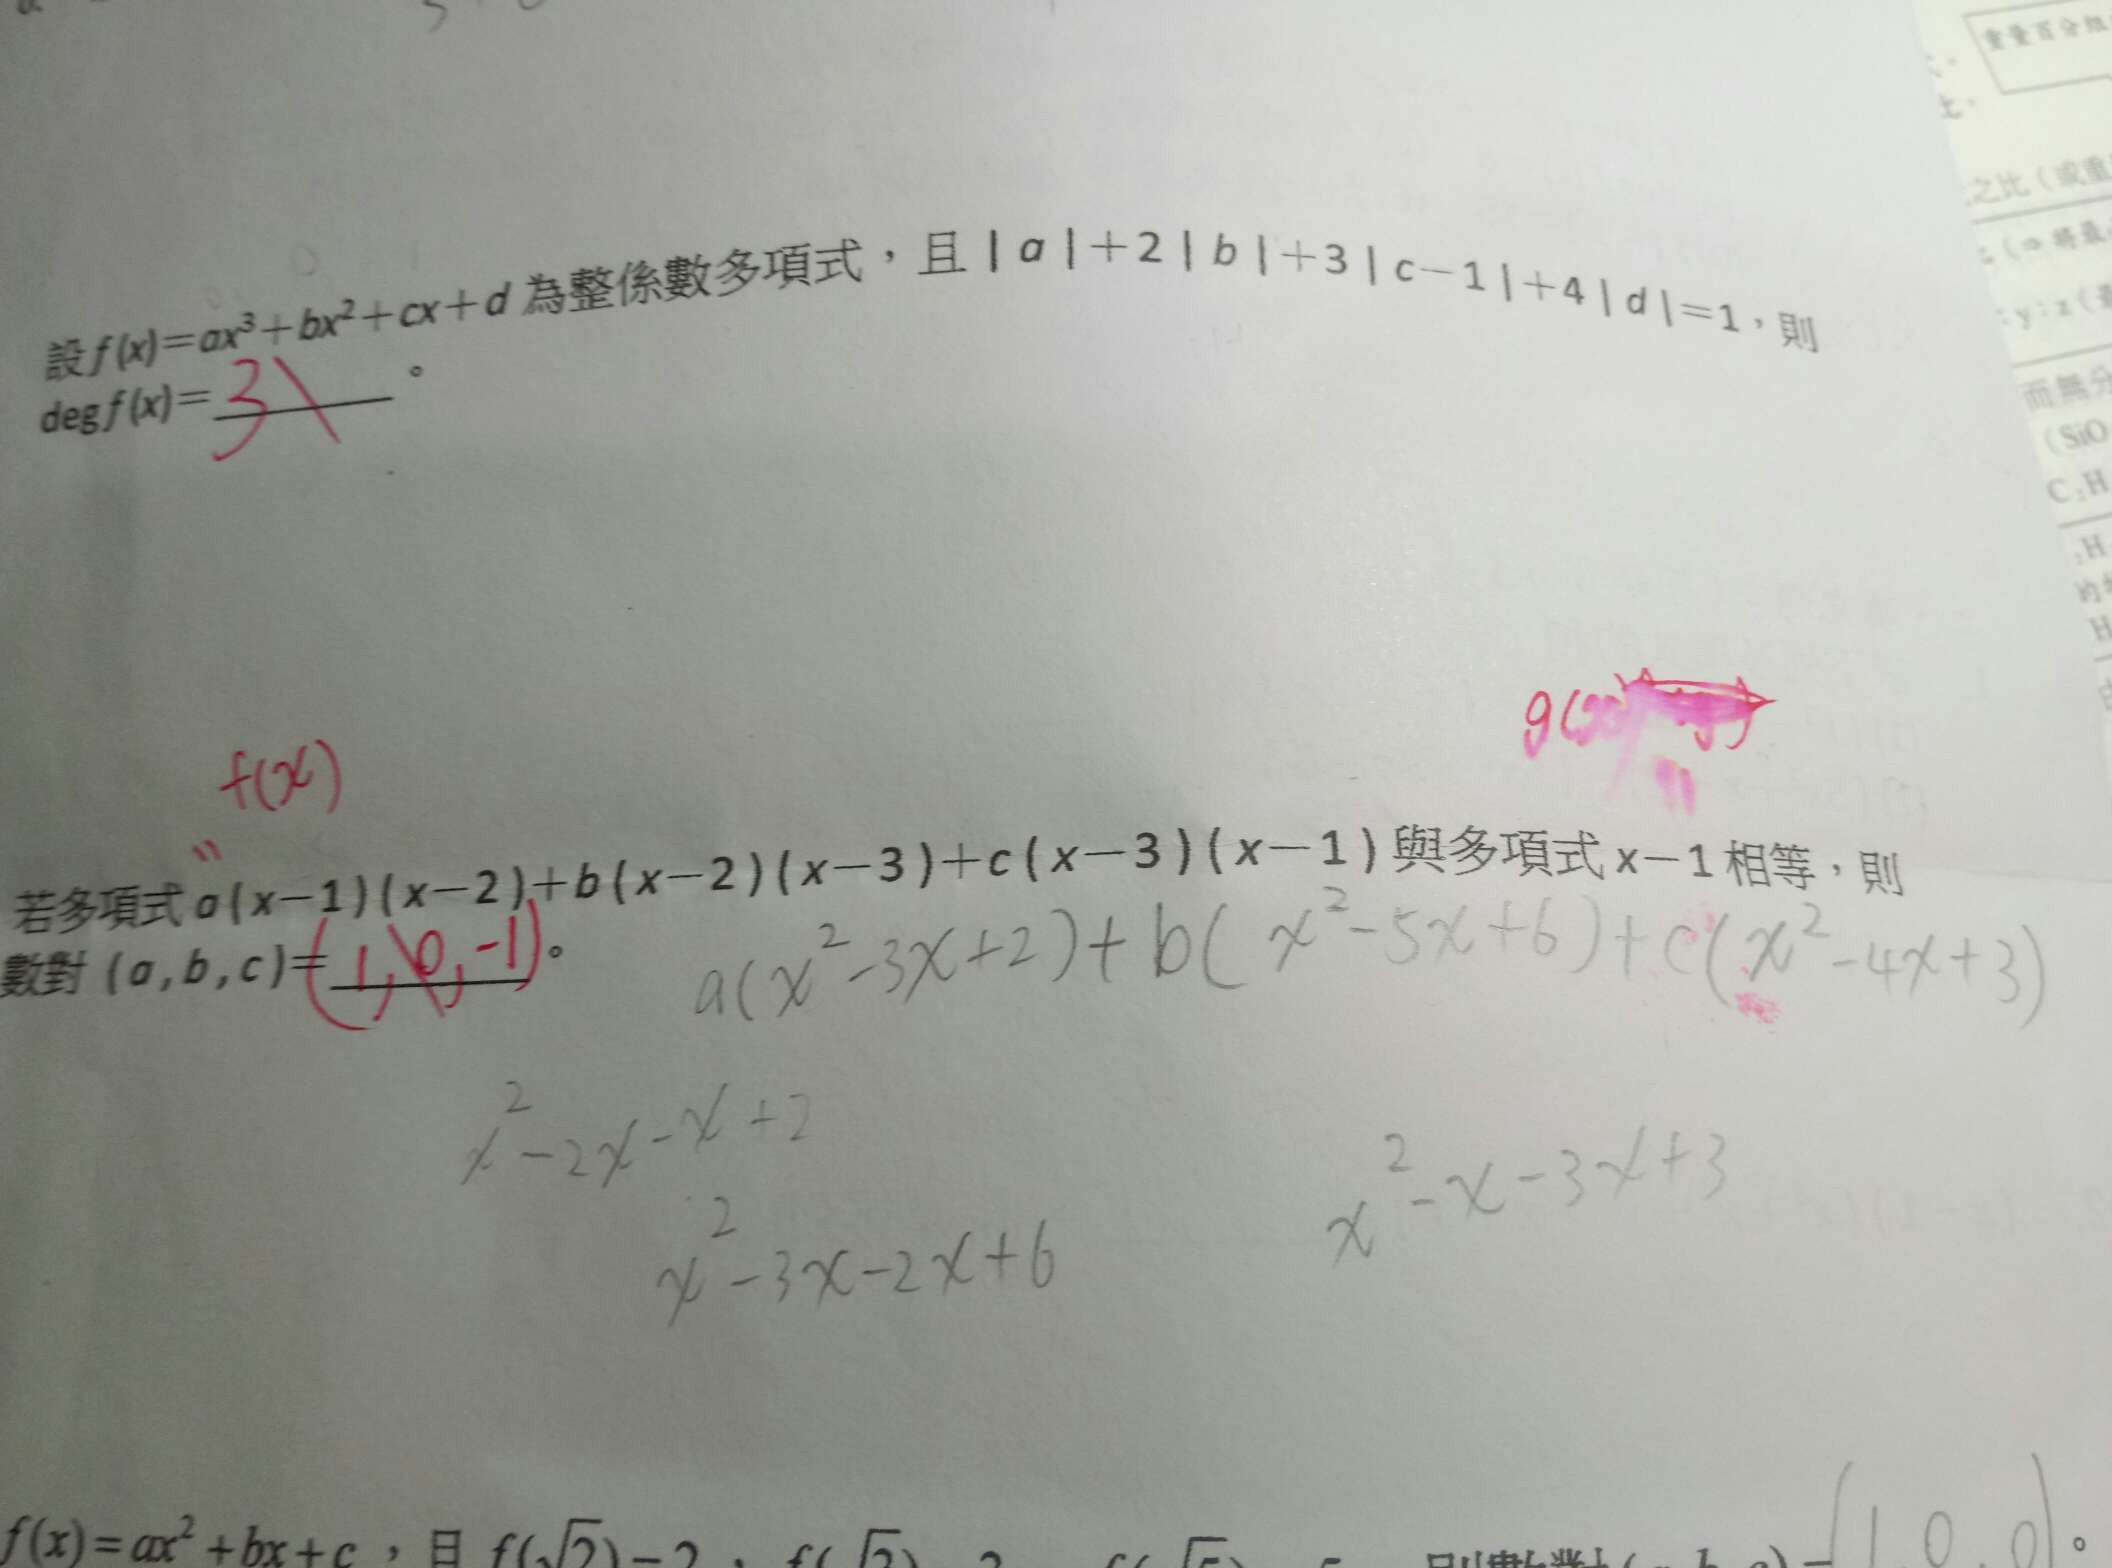 設 f(x)＝ax³＋bx²＋cx＋d 為整係數多項式，且｜a｜＋2｜b｜＋3｜c－1｜＋4｜d｜＝1，則
deg f(x)＝3。
f(x)
g(x)
若多項式 a(x－1)(x－2)＋b(x－2)(x－3)＋c(x－3)(x－1) 與多項式 x－1 相等，則
數對 (a,b,c)＝(1,0,-1)。
a(x²-3x+2)+b(x²-5x+6)+c(x²-4x+3)
x²-2x-x+2
x²-x-3x+3
x²-3x-2x+6
f(x)＝ax²＋bx＋c，且
重量百分組
之比（或重
而無分
(SiO
C₂H